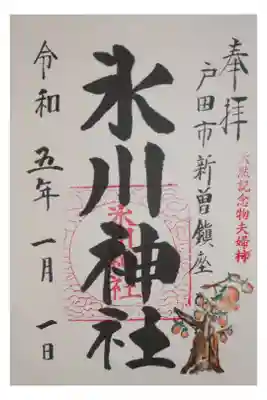 奉拝
戸田市新曽鎮座
天然記念物夫婦柿
氷川神社
氷川神社
令和五年一月一日